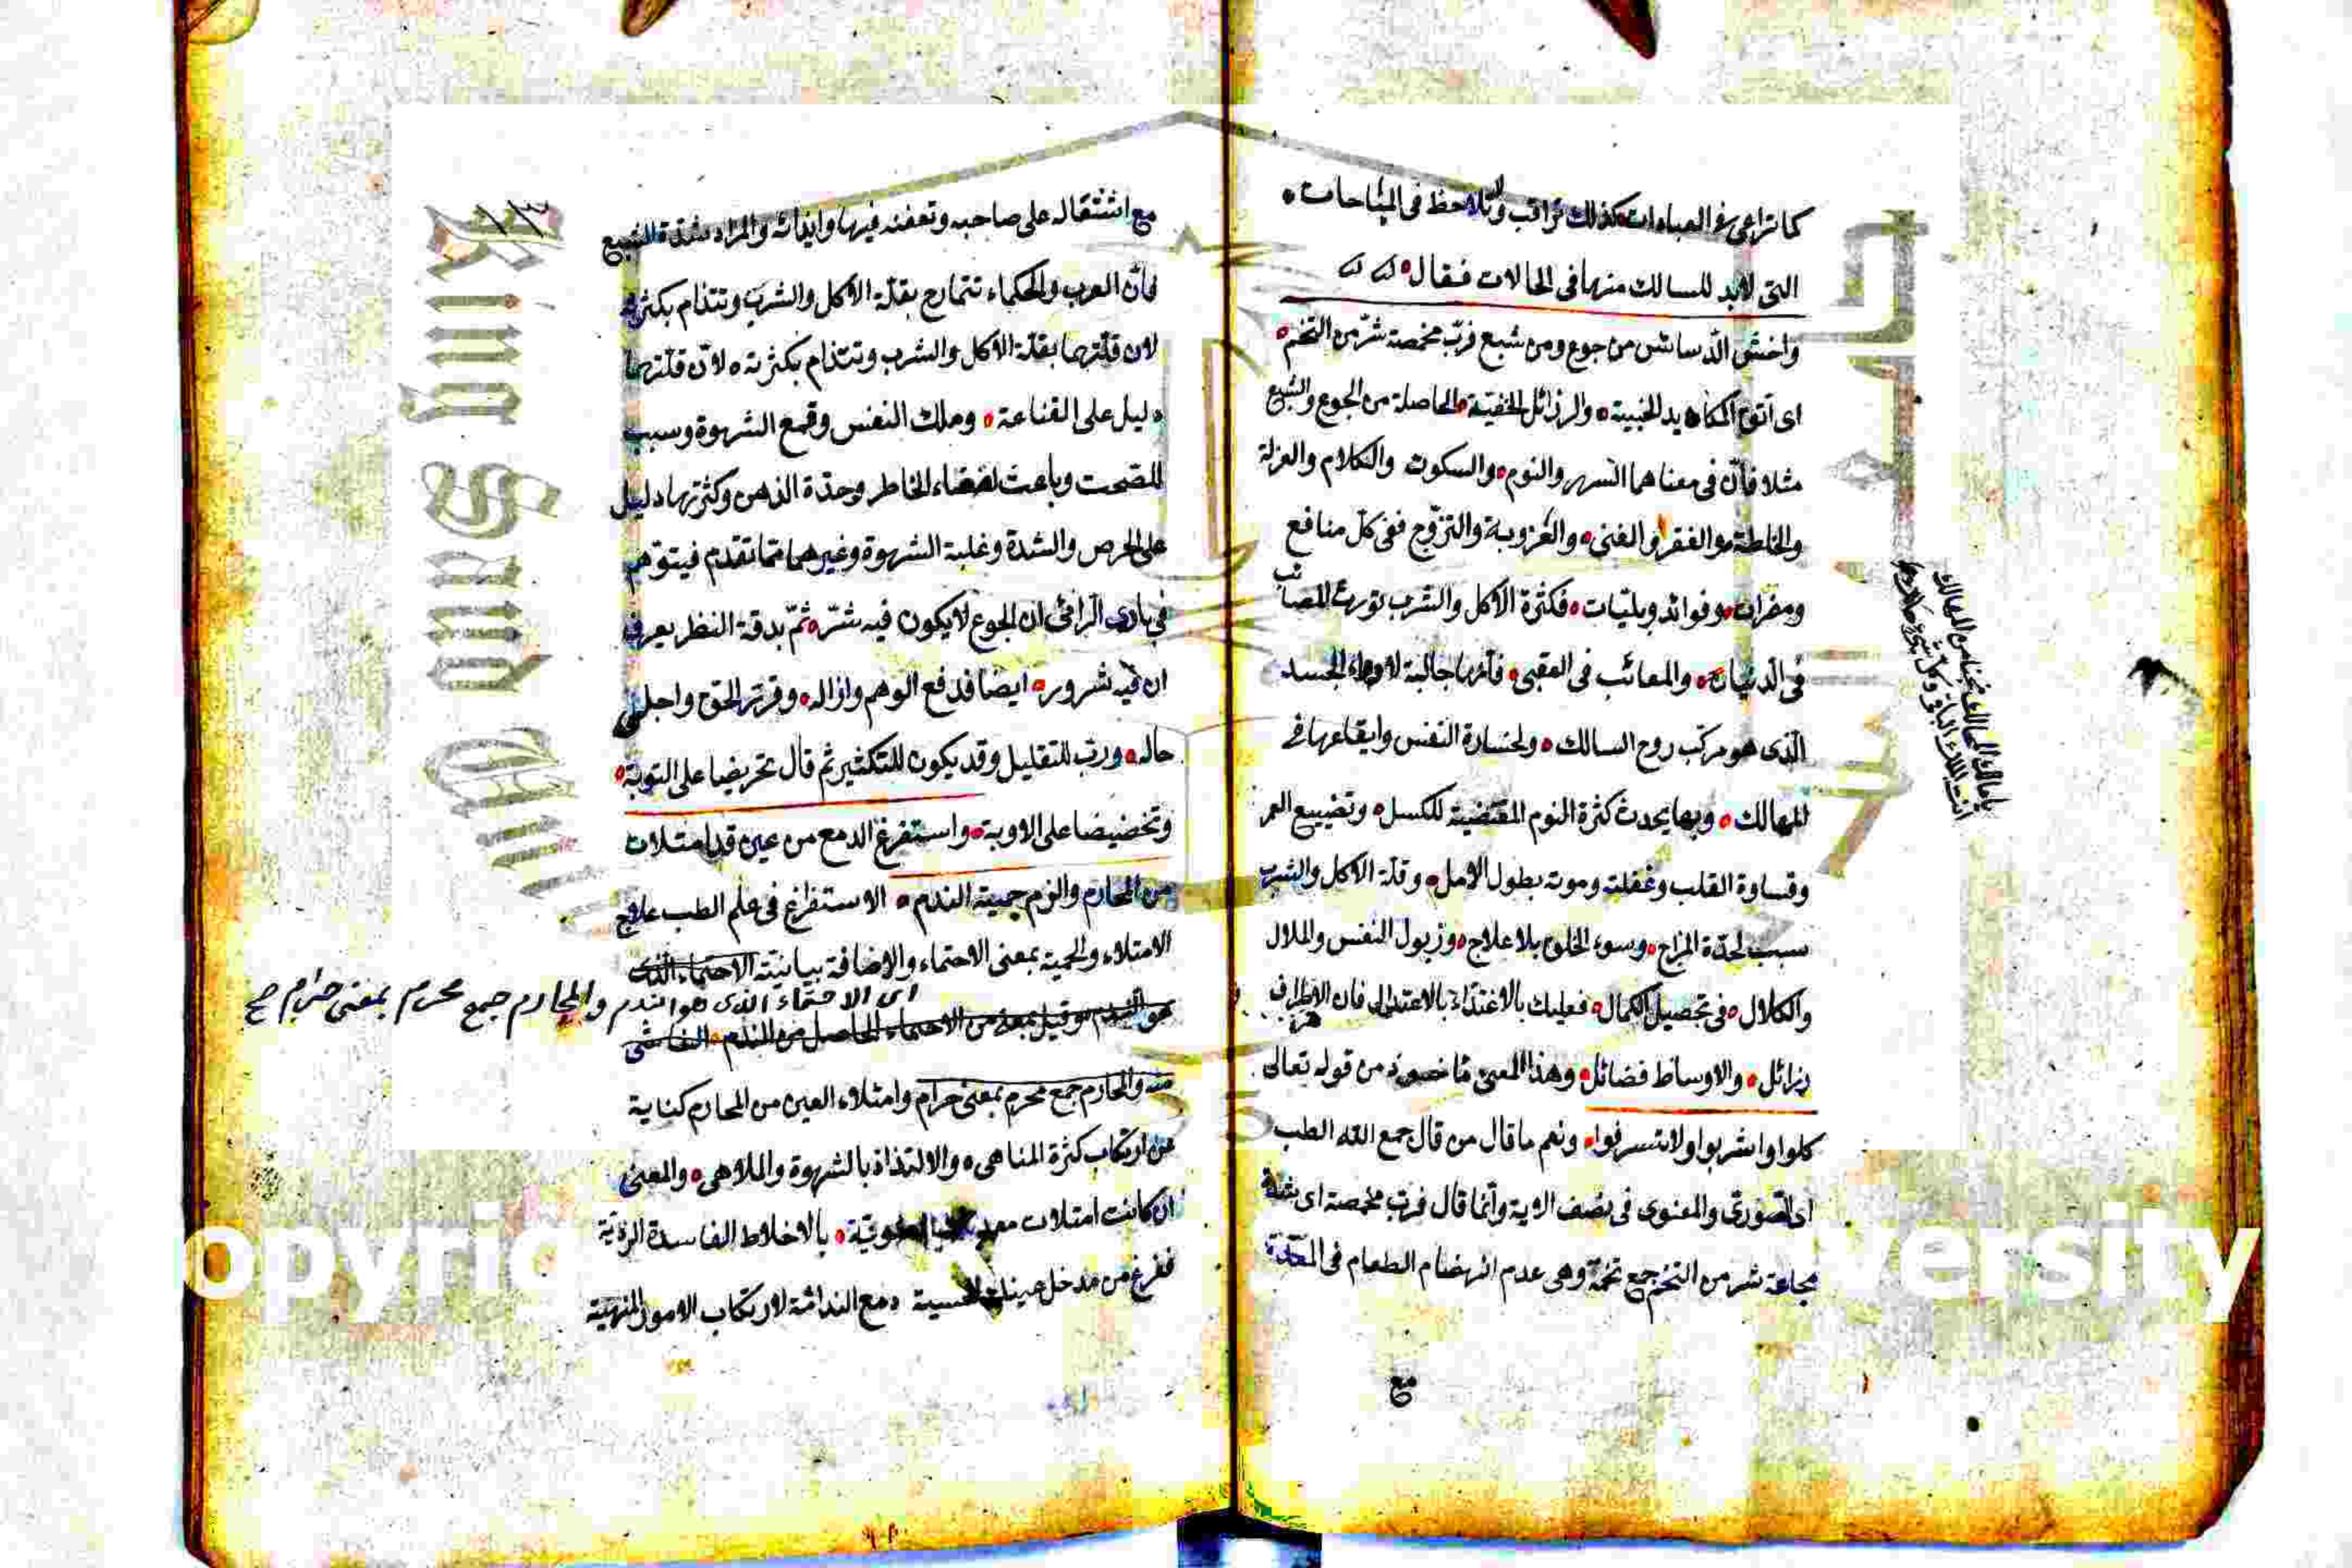 كما تراعى فى العبادات كذلك تراقب وتلاحظ فى المباحات
التى لابد للسالك منها فى الحالات فقال
واخش الدسائس من جوع ومن شبع فربّ مخمصة شرّ من التخم
اى اتق المكايد الخبيثة والرذائل الخفية الحاصلة من الجوع والشبع
مثلا فانّ فى معناهما السهر والنوم والسكوت والكلام والعزلة
والخلطة والفقر والغنى والعزوبة والتزوّج ففى كلّ منافع
ومضرات وفوائد وبليّات فكثرة الاكل والشرب تورث المصائب
فى الدنيا والمعائب فى العقبى فانها جالبة لادواء الجسد
الذى هو مركب روح السالك ولخسارة النفس وايقاعها فى
المهالك وبها يحدث كثرة النوم المقتضية للكسل وتضييع العمر
وقساوة القلب وغفلته وموته بطول الامل وقلة الاكل والشرب
سبب لحدّة المزاج وسوء الخلق بلا علاج وزبول النفس والملال
والكلال فى تحصيل الكمال فعليك بالاغتذاء بالاعتدال فان الاطراف
رذائل والاوساط فضائل وهذا المعنى مأخوذ من قوله تعالى
كلوا واشربوا ولا تسرفوا ونعم ما قال من قال جمع الله الطب
اى الصورىّ والمعنوى فى نصف الاية وانما قال فربّ مخمصة اى شدة
مجاعة شر من التخم جمع تخمة وهى عدم انهضام الطعام فى المعدة
مع
يا مالك الممالك نجنا من المهالك
مع اشتثقاله على صاحبه وتعفنه فيها وايذائه والمراد شدة الشبع
فانّ العرب والحكماء تتمادح بقلّة الاكل والشرب وتتذام بكثرته
لان قلّتهما بقلّة الاكل والشرب وتتذام بكثرته لانّ قلّتهما
دليل على القناعة وملك النفس وقمع الشهوة وسبب
للصحت وباعث لصفاء الخاطر وحدّة الذهن وكثرتها دليل
على الحرص والشدة وغلبة الشهوة وغيرهما مما تقدم فيتوهم
فى بادى الرائى ان الجوع لا يكون فيه شرّ ثمّ بدقة النظر يعرف
ان فيه شرور ايضا فدفع الوهم وازاله وقرّر الحق واجلى
حاله وربّ للتقليل وقد يكون للتكثير ثم قال تحريضا على التوبة
وتحضيضا على الاوبة واستفرغ الدمع من عين قد امتلات
من المحارم والزم حمية الندم الاستفراغ فى علم الطب علاج
الامتلاء والحمية بمعنى الاحتماء والاضافة بيانيّة الاحتماء الذى
اى الاحتماء الذى هو الندم والمحارم جمع محرم بمعنى حرام صح
هو الندم وقيل بمعنى من الاحتماء الحاصل من الندم الناشى
منه والمحارم جمع محرم بمعنى حرام وامتلاء العين من المحارم كناية
عن ارتكاب كثرة المناهى والالتذاذ بالشهوة والملاهى والمعنى
ان كانت امتلات بالاخلاط الفاسدة الرديّة
ففرغ من مدخل دمع الندامة لارتكاب الامور المنهيّة